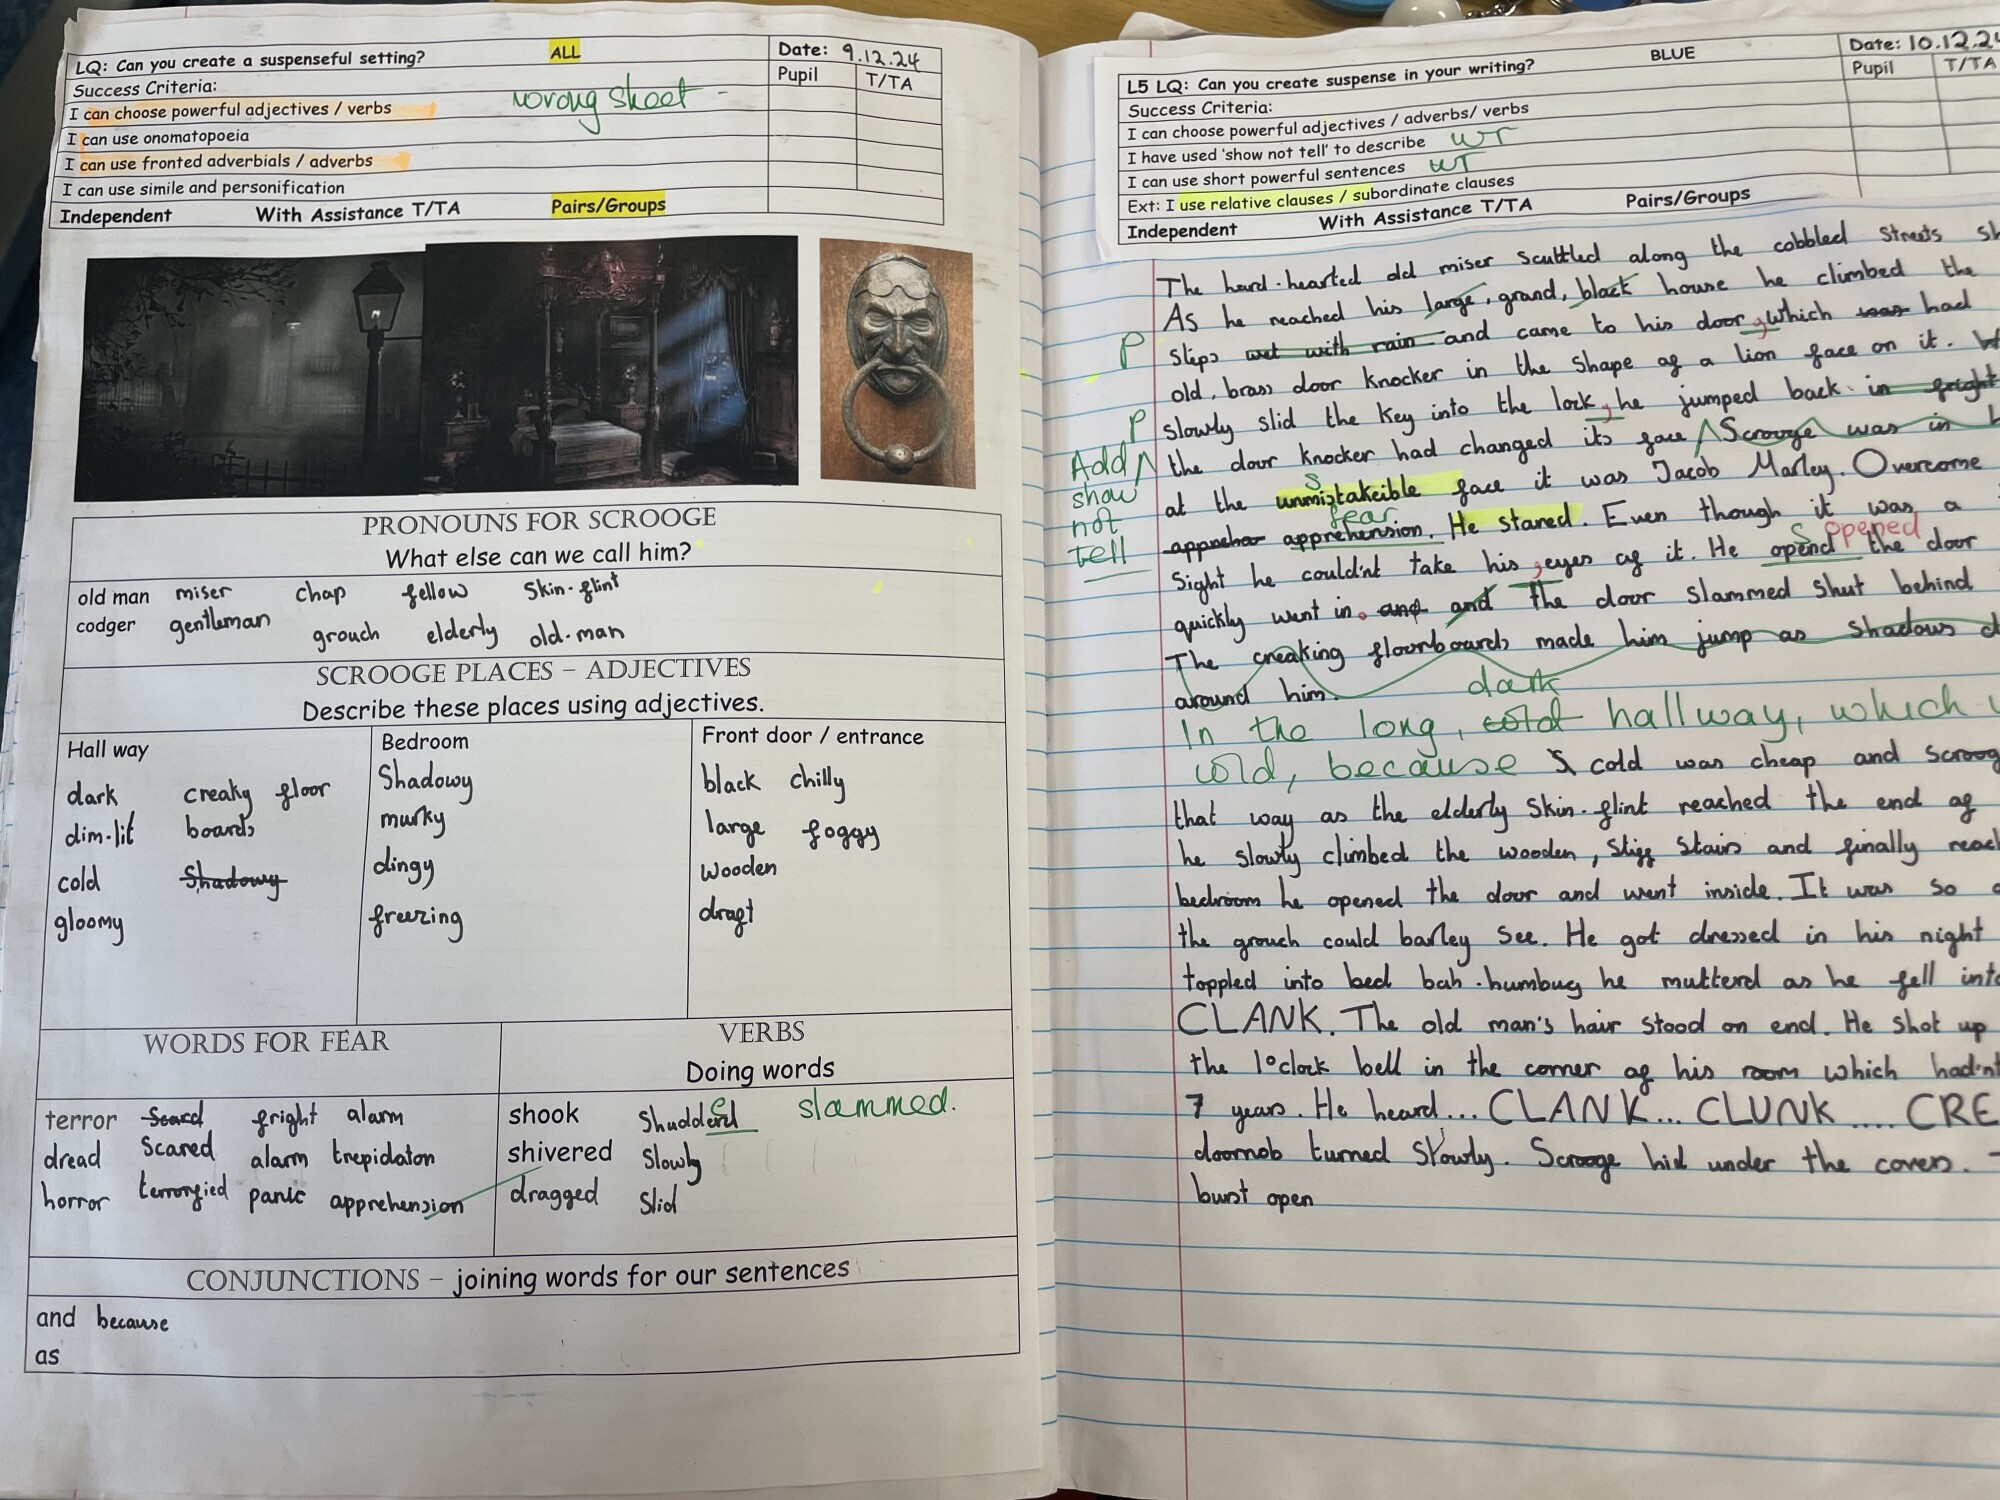 LQ: Can you create a suspenseful setting? ALL Date: 9.12.24
Success Criteria: Pupil T/TA
I can choose powerful adjectives / verbs wrong sheet -
I can use onomatopoeia
I can use fronted adverbials / adverbs
I can use simile and personification
Independent With Assistance T/TA Pairs/Groups
PRONOUNS FOR SCROOGE
What else can we call him?
old man miser chap fellow Skin-flint
codger gentleman grouch elderly old-man
SCROOGE PLACES – ADJECTIVES
Describe these places using adjectives.
Hall way
dark creaky floor
dim-lit boards
cold Shadowy
gloomy
Bedroom
Shadowy
murky
dingy
freezing
Front door / entrance
black chilly
large foggy
wooden
draft
WORDS FOR FEAR
terror Scard fright alarm
dread Scared alarm trepidaton
horror terrorfied panic apprehension
VERBS
Doing words
shook Shudderd e slammed.
shivered Slowly
dragged Slid
CONJUNCTIONS – joining words for our sentences
and because
as
L5 LQ: Can you create suspense in your writing? BLUE Date: 10.12.24
Success Criteria: Pupil T/TA
I can choose powerful adjectives / adverbs/ verbs
I have used 'show not tell' to describe WT
I can use short powerful sentences WT
Ext: I use relative clauses / subordinate clauses
Independent With Assistance T/TA Pairs/Groups
The hard-hearted old miser scuttled along the cobbled streets sh
As he reached his large, grand, black house he climbed the
P steps wet with rain and came to his door, which was had
old, brass door knocker in the shape of a lion face on it. W
P slowly slid the key into the lock, he jumped back in fright
Add show not tell
the door knocker had changed its face Scrooge was in
at the unmistakeible face it was Jacob Marley. Overcome
s fear
apprehension. He stared. Even though it was a
Sight he couldn't take his eyes of it. He opend the door
s opened
quickly went in. and and The door slammed shut behind
The creaking floorboards made him jump as shadows d
around him.
dark
In the long, cold hallway, which
cold, because cold was cheap and Scroog
that way as the elderly Skin-flint reached the end of
he slowly climbed the wooden, stiff stairs and finally reach
bedroom he opened the door and went inside. It was so
the grouch could barley see. He got dressed in his night
toppled into bed bah-humbug he mutterd as he fell into
CLANK. The old man's hair stood on end. He shot up
the 1o'clock bell in the corner of his room which hadn't
7 years. He heard... CLANK... CLUNK .... CRE
doornob turned Slowly. Scrooge hid under the covers.
burst open